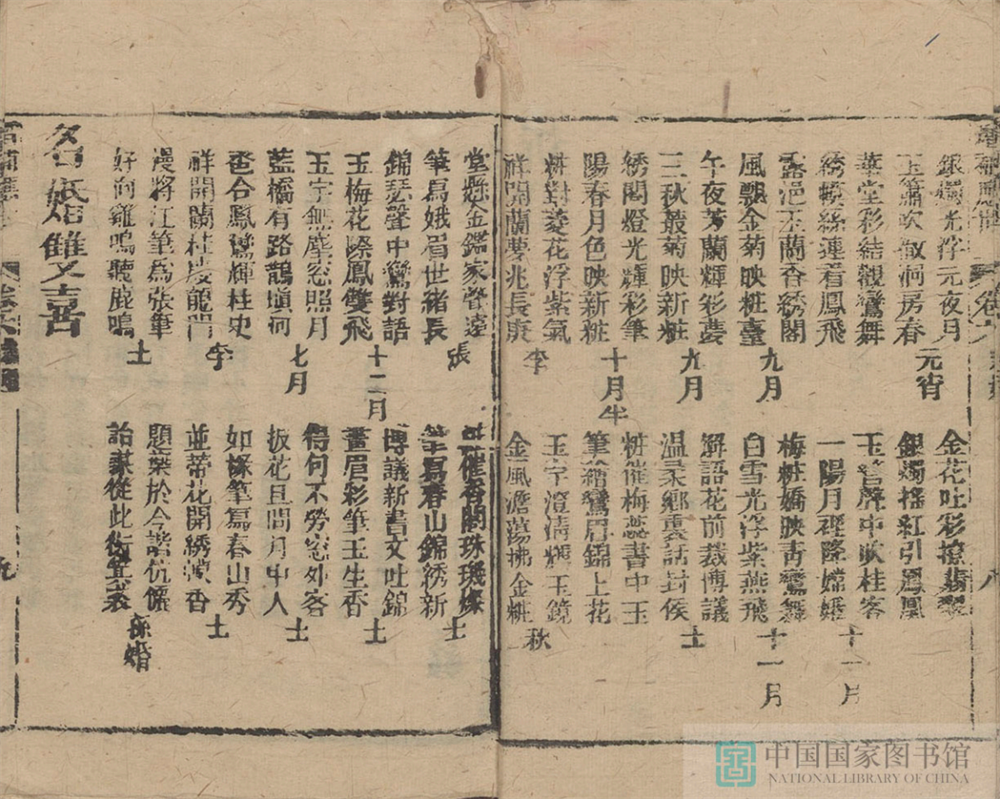 銀燭光浮元夜月
玉簫吹徹洞房春 元宵
華堂彩結觀鸞舞
綉幙絲連看鳳飛
露浥玉蘭香綉閣
風飄金菊映粧臺 九月
午夜芳蘭輝彩
三秋叢菊映新粧 九月
綉閣燈光輝彩筆
陽春月色映新粧 十月半
粧對菱花浮紫氣
祥開蘭夢兆長庚 李
金花吐彩撩翡翠
銀燭搖紅引鳳凰
玉簫聲中吹桂客
一陽月裡降嫦娥 十一月
梅粧嬌映青鸞舞
白雪光浮紫燕飛 十一月
解語花前裁博議
温柔鄉裏話封侯 士
粧催梅蕊書中玉
筆繪鸞眉錦上花
玉宇澄清輝玉鏡
金風澹蕩拂金粧 秋
堂懸金鑑家聲遠
筆寫娥眉世緒長 張
錦瑟聲中鸞對語
玉梅花際鳳雙飛 十二月
玉宇無塵窓照月
藍橋有路鵲塡河 七月
巹合鳳鸞輝柱史
祥開蘭桂茂龍門 李
漫將江筆為張筆
好向雞鳴聽鹿鳴 士
催香閣珠璣燦
筆寫春山錦綉新 士
博議新書文吐錦
畫眉彩筆玉生香 士
得句不勞窓外客
扳花且問月中人 士
如椽筆寫春山秀
並蒂花開綉幙香 士
題葉於今諧伉儷
詒謀從此衍宜家 孫婚
各婚雙又喜
中国国家图书馆
NATIONAL LIBRARY OF CHINA